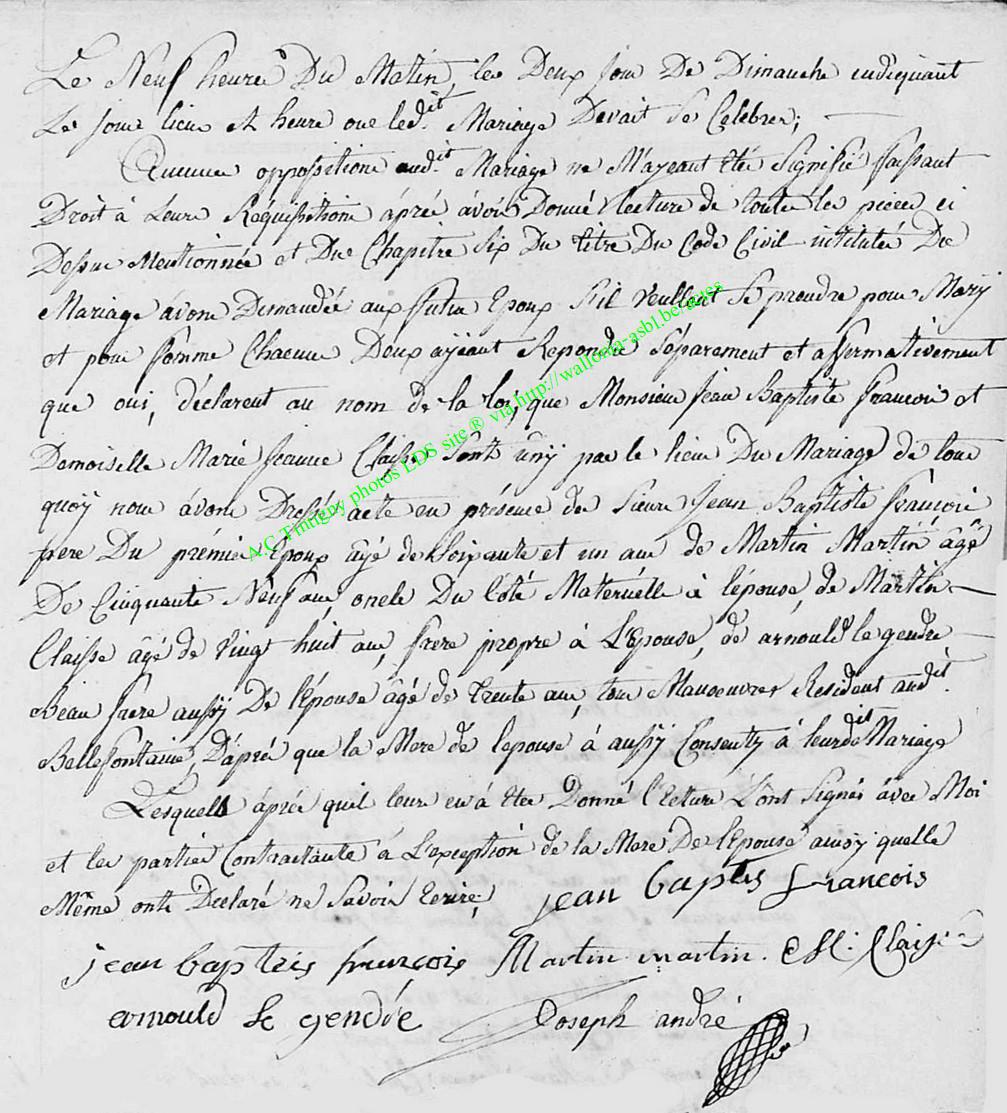 Le Neuf heure Du Matin, les Deux jour De Dimanche indiquant
Le jour lieux et heure ou led.it Mariage Devait Se Celebrer;
Aucune opposition aud.it Mariage ne M'ayant Eté Signifié faisant
Droit à Leure Requisitions áprés ávoir Donné lecture de toute les pieces ci
Dessue Mentionnée et Du Chapitre Six Du titre Du Code Civil intitulée Du
Mariage ávons Demandée aux futur Epoux Sil veullent Se prendre pour Mary
et pour femme Chacune Deux ayant Repondu Séparement et affermativement
que oui, déclarent au nom de la loi, que Monsieur Jean Baptiste francois et
Demoiselle Marie Jeanne Claisse Sont ünÿ par le lieux Du Mariage de tous
quoÿ nous ávons Dressé acte en présence de Sieure Jean Baptiste francois
pere Du prémier Epoux âgé de Soixante et un ans de Martin Martin âgé
De Cinquante Neuf ans, oncle Du Côté Maternelle à lépouse, de Martin
Claisse âgé de vingt huit ans, frere propre à L'Epouse, de arnould le gendre
Beau frere aussÿ De l'épouse âgé de trente ans, tous Manoeuvres Resident aud.it
Bellefontaine, Dáprés que la Mere de lepouse á aussÿ Consenty á leurdit Mariage
Lesquells áprés quil leure en á Eter Donné l'Ecture L'ont Signés ávec Moi
et les parties Contractante á L'exception de la Mere De lépouse ainsÿ quelle
Même onte Declaré ne Savoir Ecrire, jean baptis francois
jean baptis françois Martin martin. M. Claise
arnould le gendre Joseph andré
A.C. Tintigny photos LDS site ® via http://wallonia-asbl.be/actes